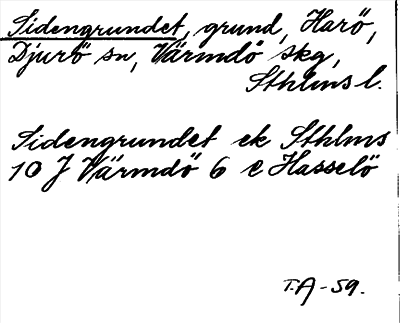 Sidengrundet, grund, Harö,
Djurö sn, Värmdö skg,
Sthlms l.
Sidengrundet ek Sthlms
10 J Värmdö 6 e Hasselö
T.A-59.